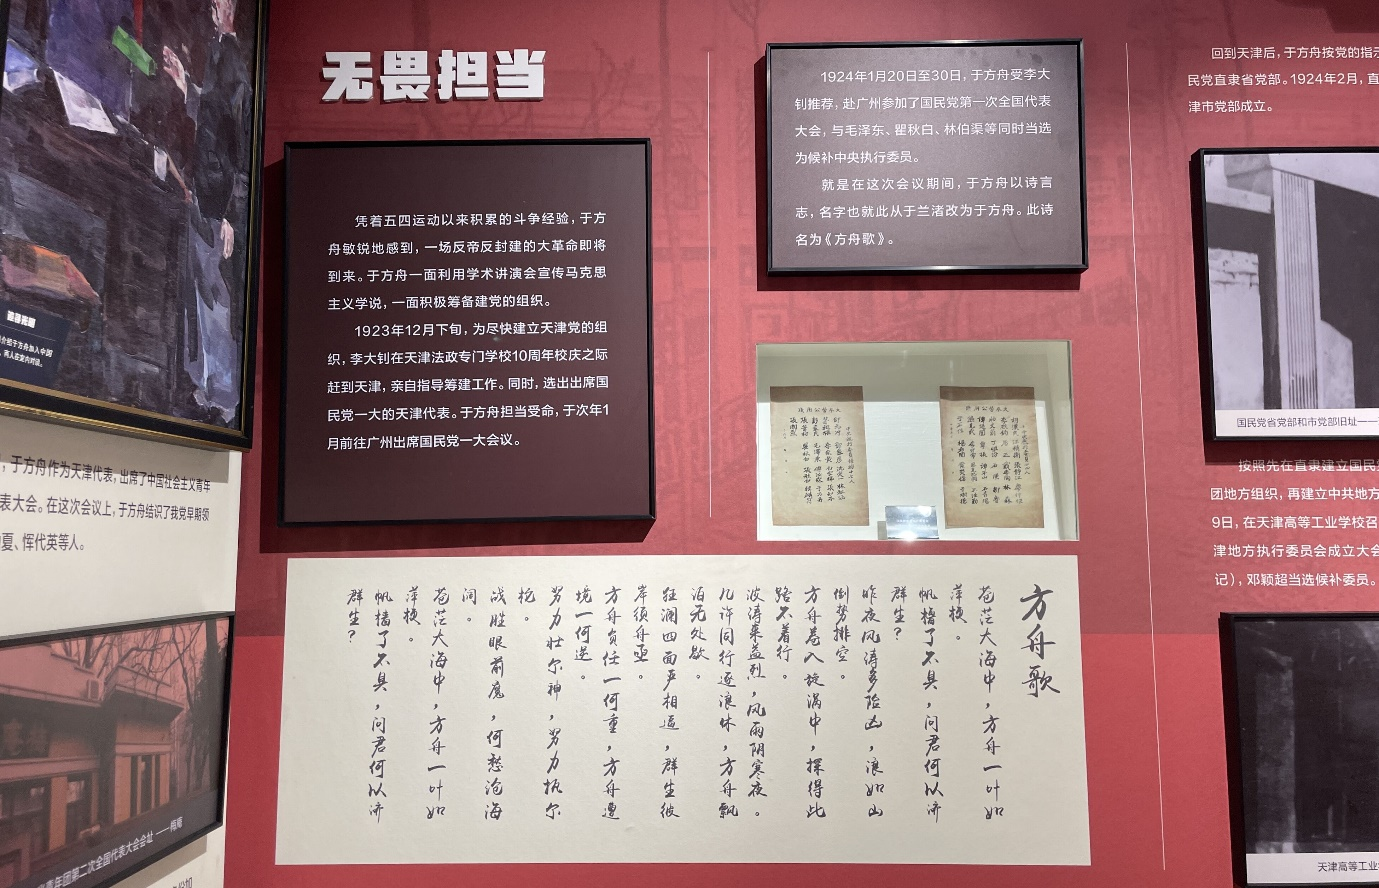 无畏担当
凭着五四运动以来积累的斗争经验，于方
舟敏锐地感到，一场反帝反封建的大革命即将
到来。于方舟一面利用学术讲演会宣传马克思
主义学说，一面积极筹备建党的组织。
1923年12月下旬，为尽快建立天津党的组
织，李大钊在天津法政专门学校10周年校庆之际
赶到天津，亲自指导筹建工作。同时，选出出席国
民党一大的天津代表。于方舟担当受命，于次年1
月前往广州出席国民党一大会议。
1924年1月20日至30日，于方舟受李大
钊推荐，赴广州参加了国民党第一次全国代表
大会，与毛泽东、瞿秋白、林伯渠等同时当选
为候补中央执行委员。
就是在这次会议期间，于方舟以诗言
志，名字也就此从于兰渚改为于方舟。此诗
名为《方舟歌》。
方舟歌
苍茫大海中，方舟一叶如
萍梗。
帆樯了不具，问君何以济
群生？
昨夜风涛多险凶，浪如山
倒势排空。
方舟卷入旋涡中，探得此
路不着行。
波涛来益烈，风雨阴寒夜。
几许同行逐浪休，方舟飘
泊无处歇。
狂澜四面严相逼，群生彼
岸须舟亟。
方舟负任一何重，方舟遭
境一何逆。
努力壮尔神，努力振尔
柁。
战胜眼前魔，何愁沧海
阔。
苍茫大海中，方舟一叶如
萍梗。
帆樯了不具，问君何以济
群生？
回到天津后，于方舟按党的指示
民党直隶省党部。1924年2月，直
津市党部成立。
国民党省党部和市党部旧址——
按照先在直隶建立国民党
团地方组织，再建立中共地方
9日，在天津高等工业学校召
津地方执行委员会成立大会
记），邓颖超当选候补委员。
天津高等工业
，于方舟作为天津代表，出席了中国社会主义青年
表大会。在这次会议上，于方舟结识了我党早期领
夏、恽代英等人。
青年团第二次全国代表大会会址